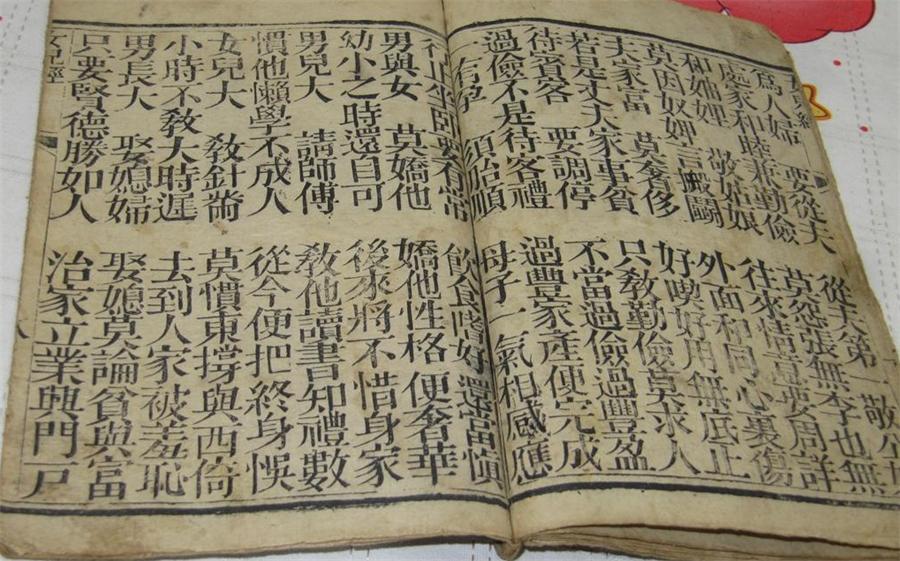 女兒經
為人婦 要從夫 從夫第一敬公
處家和睦兼勤儉 莫怨張無李也無
和妯娌 敬姑娘 往來情意要周詳
莫因奴婢言毆鬭 外面和同心裏傷
夫家富 莫奢侈 好喫好用無底止
若是丈夫家事貧 只敎勤儉莫求人
待賓客 要調停 不當過儉過豐盈
過儉不是待客禮 過豐家產便完成
一有孕 須怡順 母子一氣相感應
行止坐臥要有常 飲食嗜好還當慎
男與女 莫嬌他 嬌他性格便奢華
幼小之時還自可 後來將不惜身家
男兒大 請師傅 敎他讀書知禮數
慣他懶學不成人 從今便把終身悞
女兒大 敎針黹 莫慣東撐與西倚
小時不敎大時遲 去到人家被羞恥
男長大 娶媳婦 娶媳莫論貧與富
只要賢德勝如人 治家立業興門戸
女兒經 八